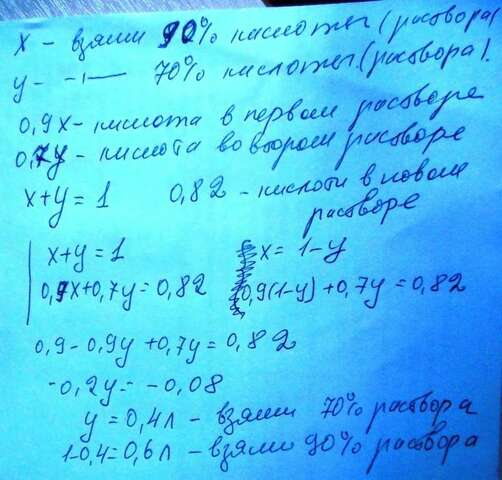 x - взяли 90% кислоты (раствора)
y - -"- 70% кислоты (раствора).
0,9x - кислота в первом растворе
0,7y - кислота во втором растворе
x+y = 1 0,82 - кислоты в новом растворе
x+y = 1 x = 1-y
0,9x+0,7y = 0,82 0,9(1-y) + 0,7y = 0,82
0,9 - 0,9y + 0,7y = 0,82
-0,2y = -0,08
y = 0,4л - взяли 70% раствора
1-0,4=0,6л - взяли 90% раствора